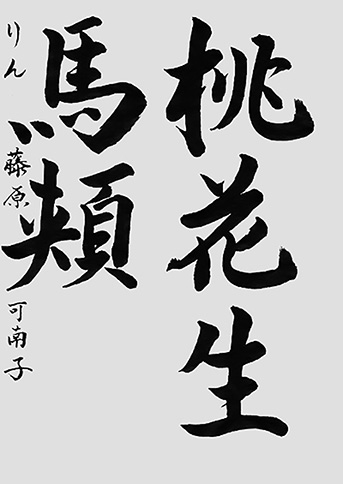 桃花生
馬頬
りん 藤原 可南子